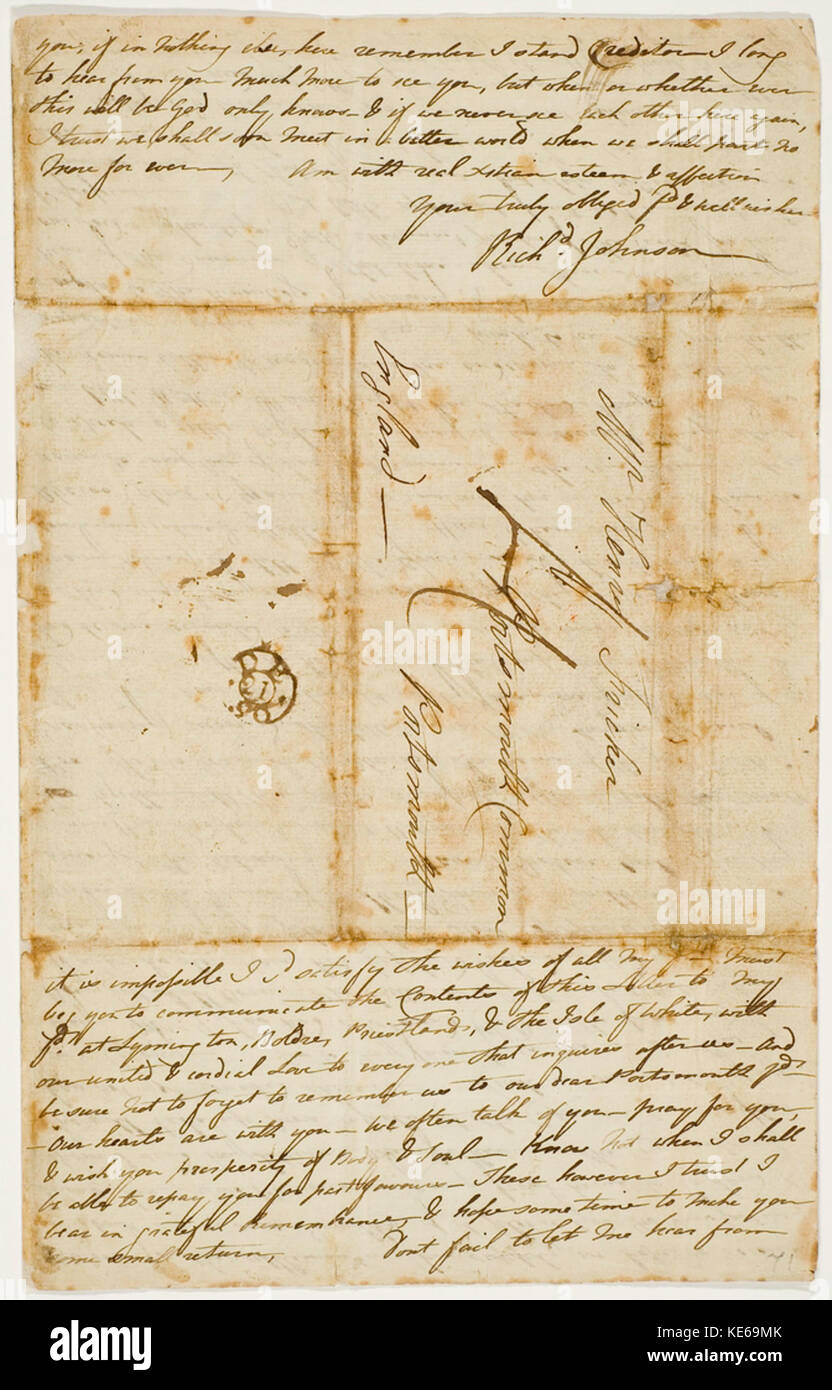 you, if in nothing else, here remember I stand Creditor I long
to hear from you much more to see you, but when or whether ever
this will be God only knows - & if we never see each other here again,
I trust we shall soon meet in a better world when we shall part no
more for ever, Am with real Xtian esteem & affection
Your truly obliged fd & well wisher
Richd Johnson
Mr Henry Fricker
Portsmouth Common
Portsmouth
England
21
it is impossible I d satisfy the wishes of all my fds must
beg you to communicate the Contents of this Letter to my
fds at Lymington, Boldre, Priestlands, & the Isle of White, with
our united & cordial Love to every one that inquires after us - And
be sure not to forget to remember us to our dear Portsmouth fds
- Our hearts are with you - We often talk of you - pray for you,
& wish you prosperity of Body & Soul - Know not when I shall
be able to repay you for past favours - These however I trust I
bear in grateful Remembrance, & hope some time to make you
some small return, Dont fail to let me hear from
71
alamy
alamy stock photo
KE69MK
www.alamy.com